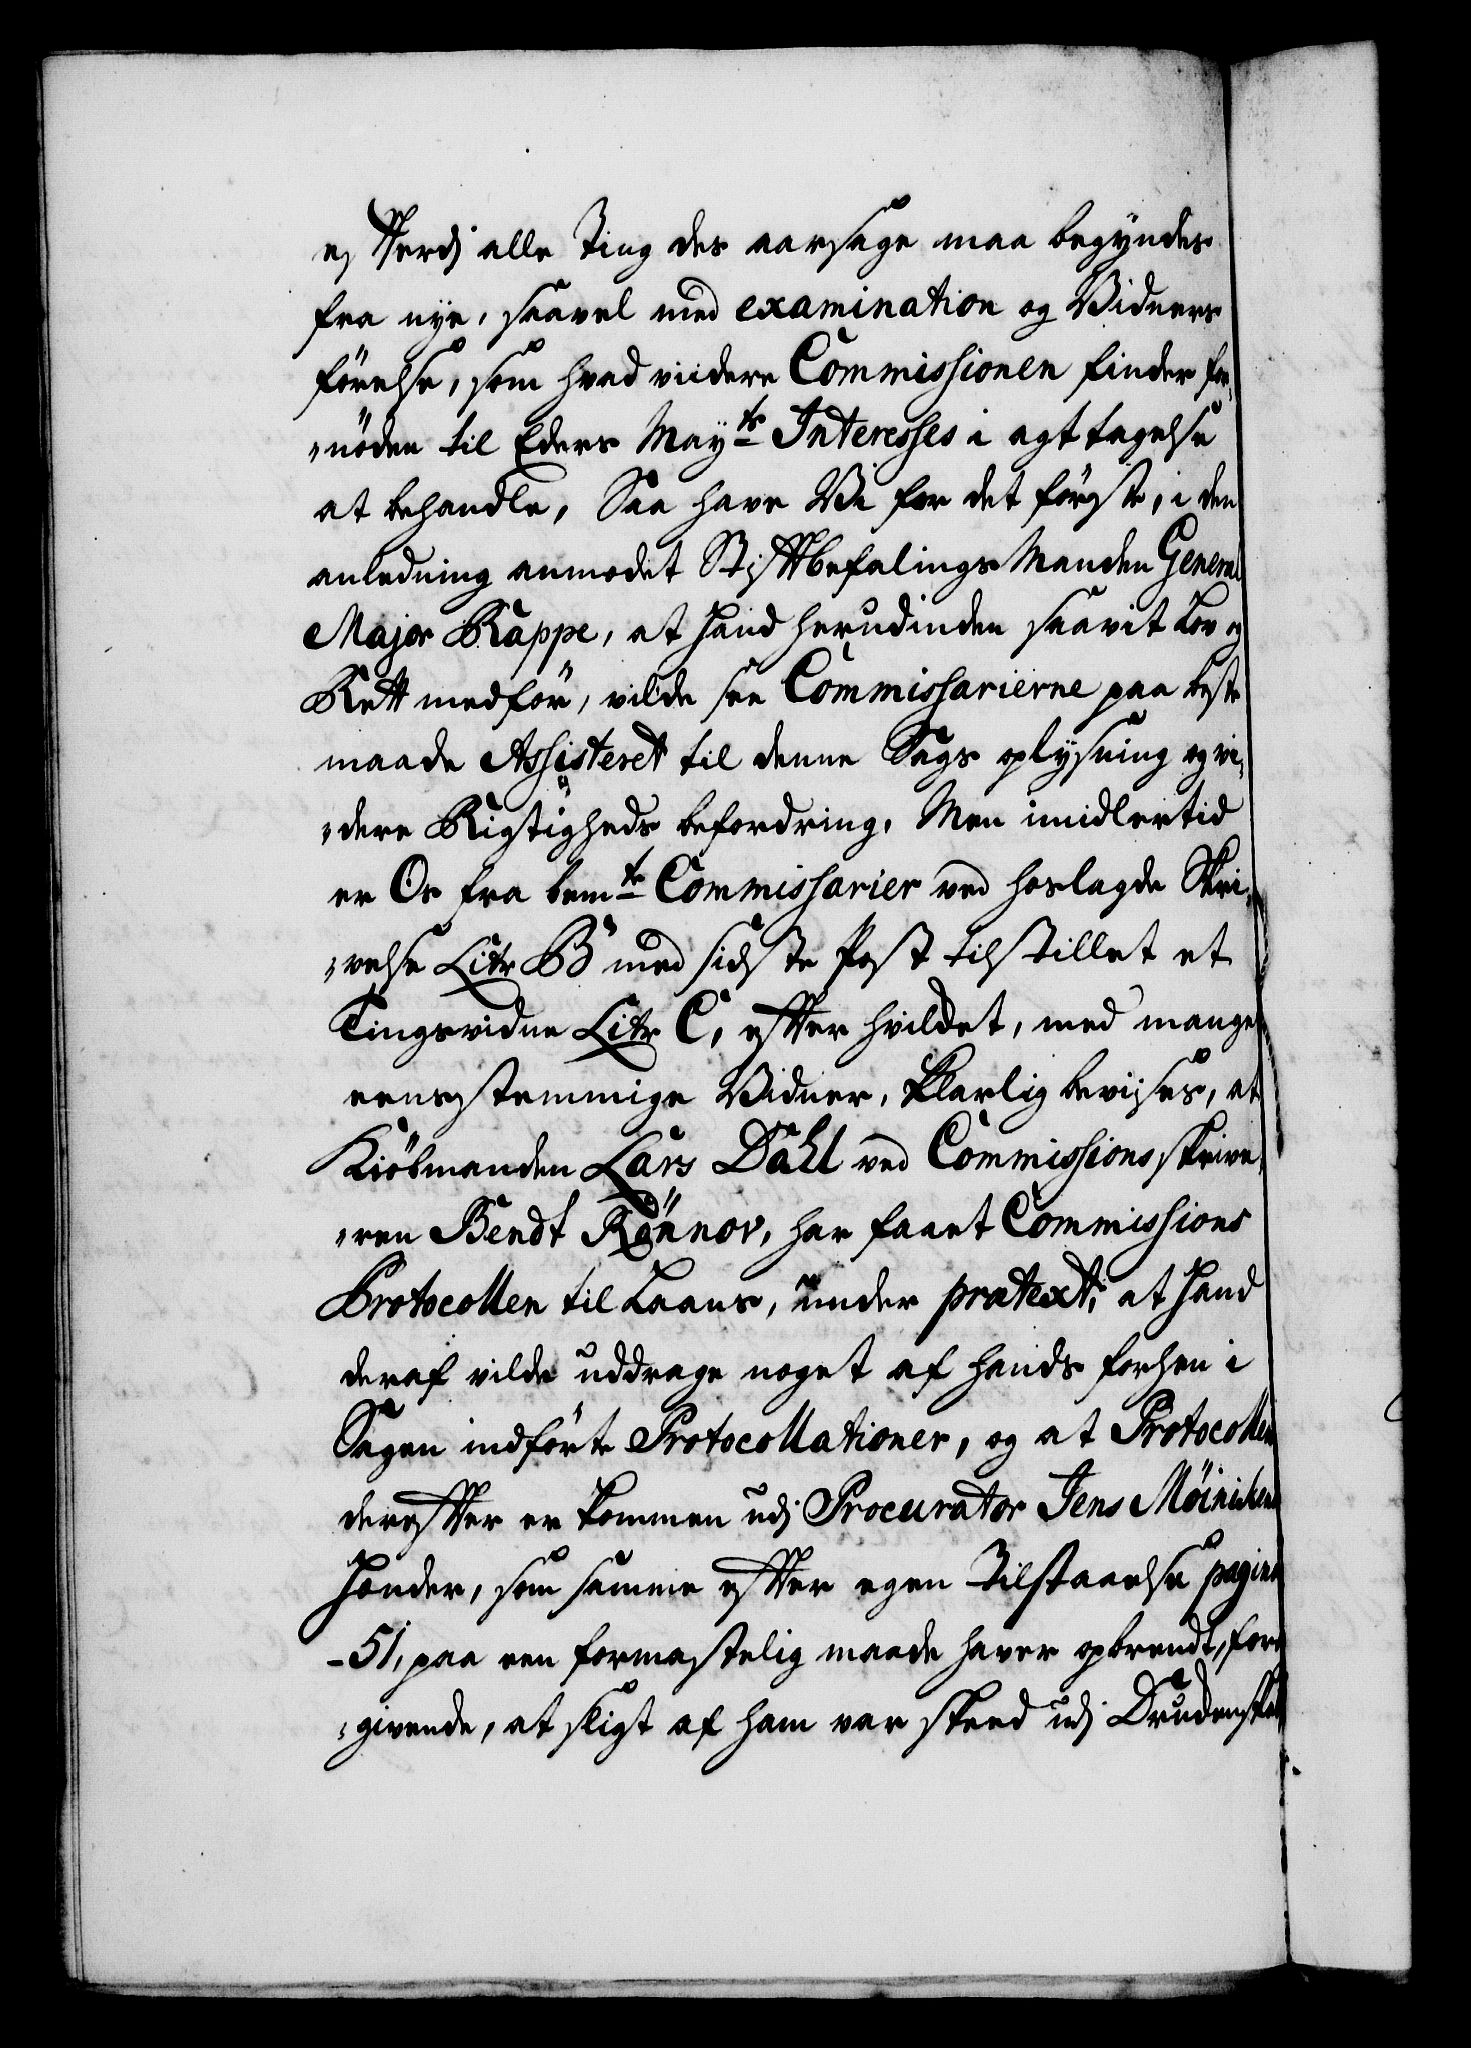 og Efterdj alle Ting des aarsage maa begyndes
fra nye, saavel med examination og Vidners
förelse, som hvad viidere Commissionen finder for¬
„nöden til Eders Mayts Interesses i agt tagelse
at behandle, Saa have Vi for det förste, i den
anledning anmodet Stiftbefalings Manden General
Major Rappe, at hand herudinden saavit Lov og
Rett medför, vilde see Commissarierne paa beste
maade Assisteret til denne Sags oplysning og vi„
„dere Rigtigheds befordring. Men imidlertid
er Os fra bemte Commissarier ved hoslagde Skri„
„velse Litr B med sidste Post tilstillet et
Tingsvidne Litr C, efter hvildet, med mange
eensstemmige Vidner, klarlig bevises, at
Kiöbmanden Lars Dahl ved Commissions skrive„
„ren Bendt Rönnov, har faaet Commissions
Protocollen til Laans, under prætext, at hand
deraf vilde uddrage noget af hands forhen i
Sagen indförte Protocollationer, og at Protocollen
derefter er kommen udj Procurator Jens Möinichens
Hænder, som samme efter egen Tilstaaelse pagina
-51, paa een formastelig maade haver opbrendt, fore
„givende, at sligt af ham var skeed udj Drudenskab